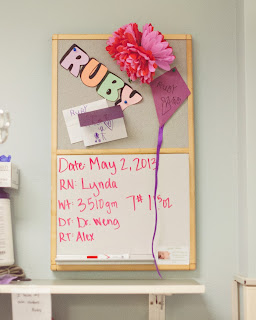 RUBY
Date: May 2, 2013
RN: Lynda
Wt: 3510gm 7# 11.8oz
Dr: Dr. Weng
RT: Alex